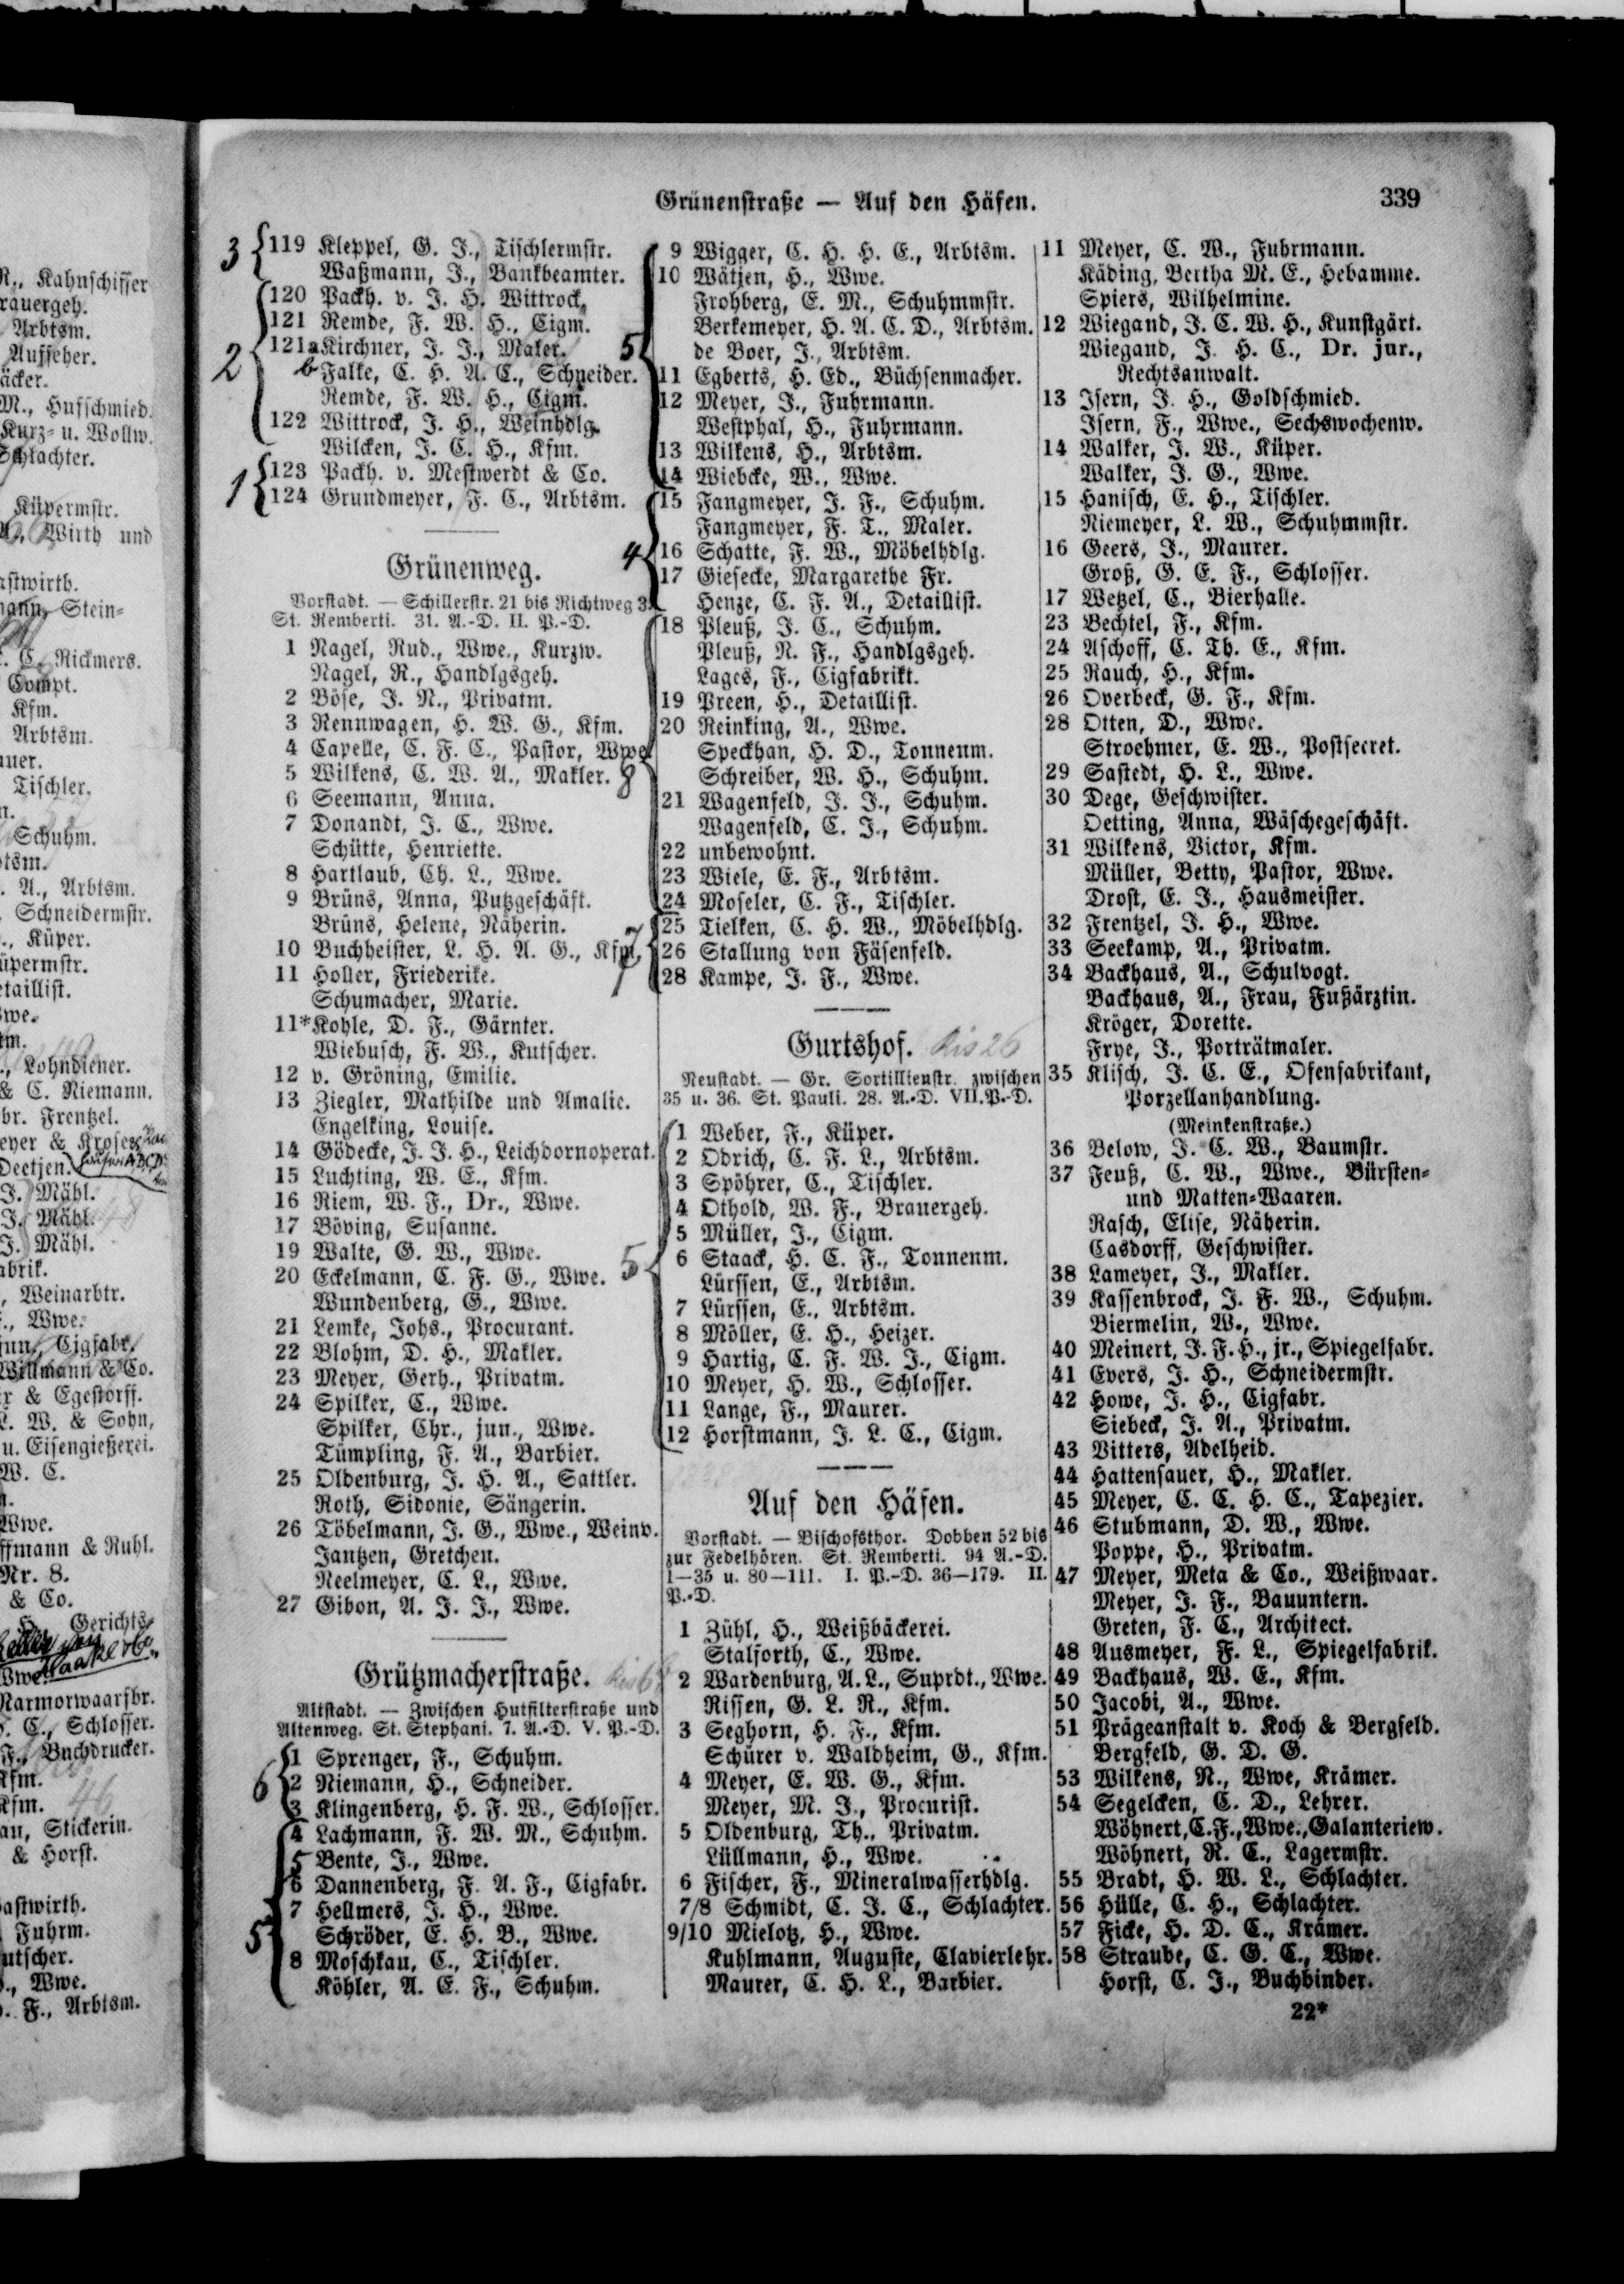 Grünenstraße — Auf den Häfen. 339
3
119 Kleppel, G. J., Tischlermstr.
Waßmann, J., Bankbeamter.
120 Packh. v. J. H. Wittrock.
121 Remde, F. W. H., Cigm.
2
121a Kirchner, J. J., Maler.
b Falke, C. H. A. C., Schneider.
Remde, F. W. H., Cigm.
122 Wittrock, J. H., Weinhdlg.
Wilcken, J. C. H., Kfm.
1
123 Packh. v. Mestwerdt & Co.
124 Grundmeyer, F. C., Arbtsm.
Grünenweg.
Vorstadt. — Schillerstr. 21 bis Richtweg 3.
St. Remberti. 31. A.-D. II. P.-D.
1 Nagel, Rud., Wwe., Kurzw.
Nagel, R., Handlgsgeh.
2 Böse, J. N., Privatm.
3 Rennwagen, H. W. G., Kfm.
4 Capelle, C. F. C., Pastor, Wwe
5 Wilkens, C. W. A., Makler.
6 Seemann, Anna.
7 Donandt, J. C., Wwe.
Schütte, Henriette.
8 Hartlaub, Ch. L., Wwe.
9 Brüns, Anna, Putzgeschäft.
Brüns, Helene, Näherin.
10 Buchheister, L. H. A. G., Kfm.
11 Holler, Friederike.
Schumacher, Marie.
11* Kohle, D. F., Gärnter.
Wiebusch, F. W., Kutscher.
12 v. Gröning, Emilie.
13 Ziegler, Mathilde und Amalie.
Engelking, Louise.
14 Gödecke, J. J. H., Leichdornoperat.
15 Luchting, W. E., Kfm.
16 Riem, W. F., Dr., Wwe.
17 Böving, Susanne.
19 Walte, G. W., Wwe.
20 Eckelmann, C. F. G., Wwe.
Wundenberg, G., Wwe.
21 Lemke, Johs., Procurant.
22 Blohm, D. H., Makler.
23 Meyer, Gerh., Privatm.
24 Spilker, C., Wwe.
Spilker, Chr., jun., Wwe.
Tümpling, F. A., Barbier.
25 Oldenburg, J. H. A., Sattler.
Roth, Sidonie, Sängerin.
26 Töbelmann, J. G., Wwe., Weinv.
Jantzen, Gretchen.
Neelmeyer, C. L., Wwe.
27 Gibon, A. J. J., Wwe.
Grützmacherstraße.
Altstadt. — Zwischen Hutfilterstraße und
Altenweg. St. Stephani. 7. A.-D. V. P.-D.
1 Sprenger, F., Schuhm.
6
2 Niemann, H., Schneider.
3 Klingenberg, H. F. W., Schlosser.
4 Lachmann, F. W. M., Schuhm.
5 Bente, J., Wwe.
6 Dannenberg, F. A. F., Cigfabr.
7 Hellmers, J. H., Wwe.
5
Schröder, E. H. B., Wwe.
8 Moschkau, C., Tischler.
Köhler, A. E. F., Schuhm.
9 Wigger, C. H. H. E., Arbtsm.
10 Wätjen, H., Wwe.
Frohberg, E. M., Schuhmmstr.
Berkemeyer, H. A. C. D., Arbtsm.
5
de Boer, J., Arbtsm.
11 Egberts, H. Ed., Büchsenmacher.
12 Meyer, J., Fuhrmann.
Westphal, H., Fuhrmann.
13 Wilkens, H., Arbtsm.
14 Wiebcke, W., Wwe.
15 Fangmeyer, J. F., Schuhm.
Fangmeyer, F. T., Maler.
4
16 Schatte, F. W., Möbelhdlg.
17 Giesecke, Margarethe Fr.
Henze, C. F. A., Detaillist.
18 Pleuß, J. C., Schuhm.
Pleuß, N. F., Handlgsgeh.
Lages, F., Cigfabrikt.
19 Preen, H., Detaillist.
20 Reinking, A., Wwe.
Speckhan, H. D., Tonnenm.
8
Schreiber, W. H., Schuhm.
21 Wagenfeld, J. J., Schuhm.
Wagenfeld, C. J., Schuhm.
22 unbewohnt.
23 Wiele, E. F., Arbtsm.
24 Moseler, C. F., Tischler.
7
25 Tielken, C. H. W., Möbelhdlg.
26 Stallung von Fäsenfeld.
28 Kampe, J. F., Wwe.
Gurtshof.
Neustadt. — Gr. Sortillienstr. zwischen
35 u. 36. St. Pauli. 28. A.-D. VII. P.-D.
1 Weber, F., Küper.
2 Odrich, C. F. L., Arbtsm.
3 Spöhrer, C., Tischler.
4 Othold, W. F., Brauergeh.
5 Müller, J., Cigm.
5
6 Staack, H. C. F., Tonnenm.
Lürssen, E., Arbtsm.
7 Lürssen, E., Arbtsm.
8 Möller, E. H., Heizer.
9 Hartig, C. F. W. J., Cigm.
10 Meyer, H. W., Schlosser.
11 Lange, F., Maurer.
12 Horstmann, J. L. C., Cigm.
Auf den Häfen.
Vorstadt. — Bischofsthor. Dobben 52 bis
zur Fedelhören. St. Remberti. 94 A.-D.
1—35 u. 80—111. I. P.-D. 36—179. II.
P.-D.
1 Zühl, H., Weißbäckerei.
Stalforth, C., Wwe.
2 Wardenburg, A. L., Suprdt., Wwe.
Rissen, G. L. R., Kfm.
3 Seghorn, H. F., Kfm.
Schürer v. Waldheim, G., Kfm.
4 Meyer, E. W. G., Kfm.
Meyer, M. J., Procurist.
5 Oldenburg, Th., Privatm.
Lüllmann, H., Wwe.
6 Fischer, F., Mineralwasserhdlg.
7/8 Schmidt, C. J. C., Schlachter.
9/10 Mielotz, H., Wwe.
Kuhlmann, Auguste, Clavierlehr.
Maurer, C. H. L., Barbier.
11 Meyer, C. W., Fuhrmann.
Käding, Bertha M. E., Hebamme.
Spiers, Wilhelmine.
12 Wiegand, J. C. W. H., Kunstgärt.
Wiegand, J. H. C., Dr. jur.,
Rechtsanwalt.
13 Isern, J. H., Goldschmied.
Isern, F., Wwe., Sechswochenw.
14 Walker, J. W., Küper.
Walker, J. G., Wwe.
15 Hanisch, E. H., Tischler.
Niemeyer, L. W., Schuhmmstr.
16 Geers, J., Maurer.
Groß, G. E. F., Schlosser.
17 Wetzel, C., Bierhalle.
23 Bechtel, F., Kfm.
24 Aschoff, C. Th. E., Kfm.
25 Rauch, H., Kfm.
26 Overbeck, G. F., Kfm.
28 Otten, D., Wwe.
Stroehmer, E. W., Postsecret.
29 Sastedt, H. L., Wwe.
30 Dege, Geschwister.
Oetting, Anna, Wäschegeschäft.
31 Wilkens, Victor, Kfm.
Müller, Betty, Pastor, Wwe.
Drost, E. J., Hausmeister.
32 Frentzel, J. H., Wwe.
33 Seekamp, A., Privatm.
34 Backhaus, A., Schulvogt.
Backhaus, A., Frau, Fußärztin.
Kröger, Dorette.
Frye, J., Porträtmaler.
35 Klisch, J. C. E., Ofenfabrikant,
Porzellanhandlung.
(Meinkenstraße.)
36 Below, J. C. W., Baumstr.
37 Feuß, C. W., Wwe., Bürsten-
und Matten-Waaren.
Rasch, Elise, Näherin.
Casdorff, Geschwister.
38 Lameyer, J., Makler.
39 Kassenbrock, J. F. W., Schuhm.
Biermelin, W., Wwe.
40 Meinert, J. F. H., jr., Spiegelfabr.
41 Evers, J. H., Schneidermstr.
42 Howe, J. H., Cigfabr.
Siebeck, J. A., Privatm.
43 Vitters, Adelheid.
44 Hattensauer, H., Makler.
45 Meyer, C. C. H. C., Tapezier.
46 Stubmann, D. W., Wwe.
Poppe, H., Privatm.
47 Meyer, Meta & Co., Weißwaar.
Meyer, J. F., Bauuntern.
Greten, F. C., Architect.
48 Ausmeyer, F. L., Spiegelfabrik.
49 Backhaus, W. E., Kfm.
50 Jacobi, A., Wwe.
51 Prägeanstalt v. Koch & Bergfeld.
Bergfeld, G. D. G.
53 Wilkens, N., Wwe, Krämer.
54 Segelcken, C. D., Lehrer.
Wöhnert, C. F., Wwe., Galanteriew.
Wöhnert, R. C., Lagermstr.
55 Bradt, H. W. L., Schlachter.
56 Hülle, C. H., Schlachter.
57 Ficke, H. D. C., Krämer.
58 Straube, C. G. C., Wwe.
Horst, C. J., Buchbinder.
22*